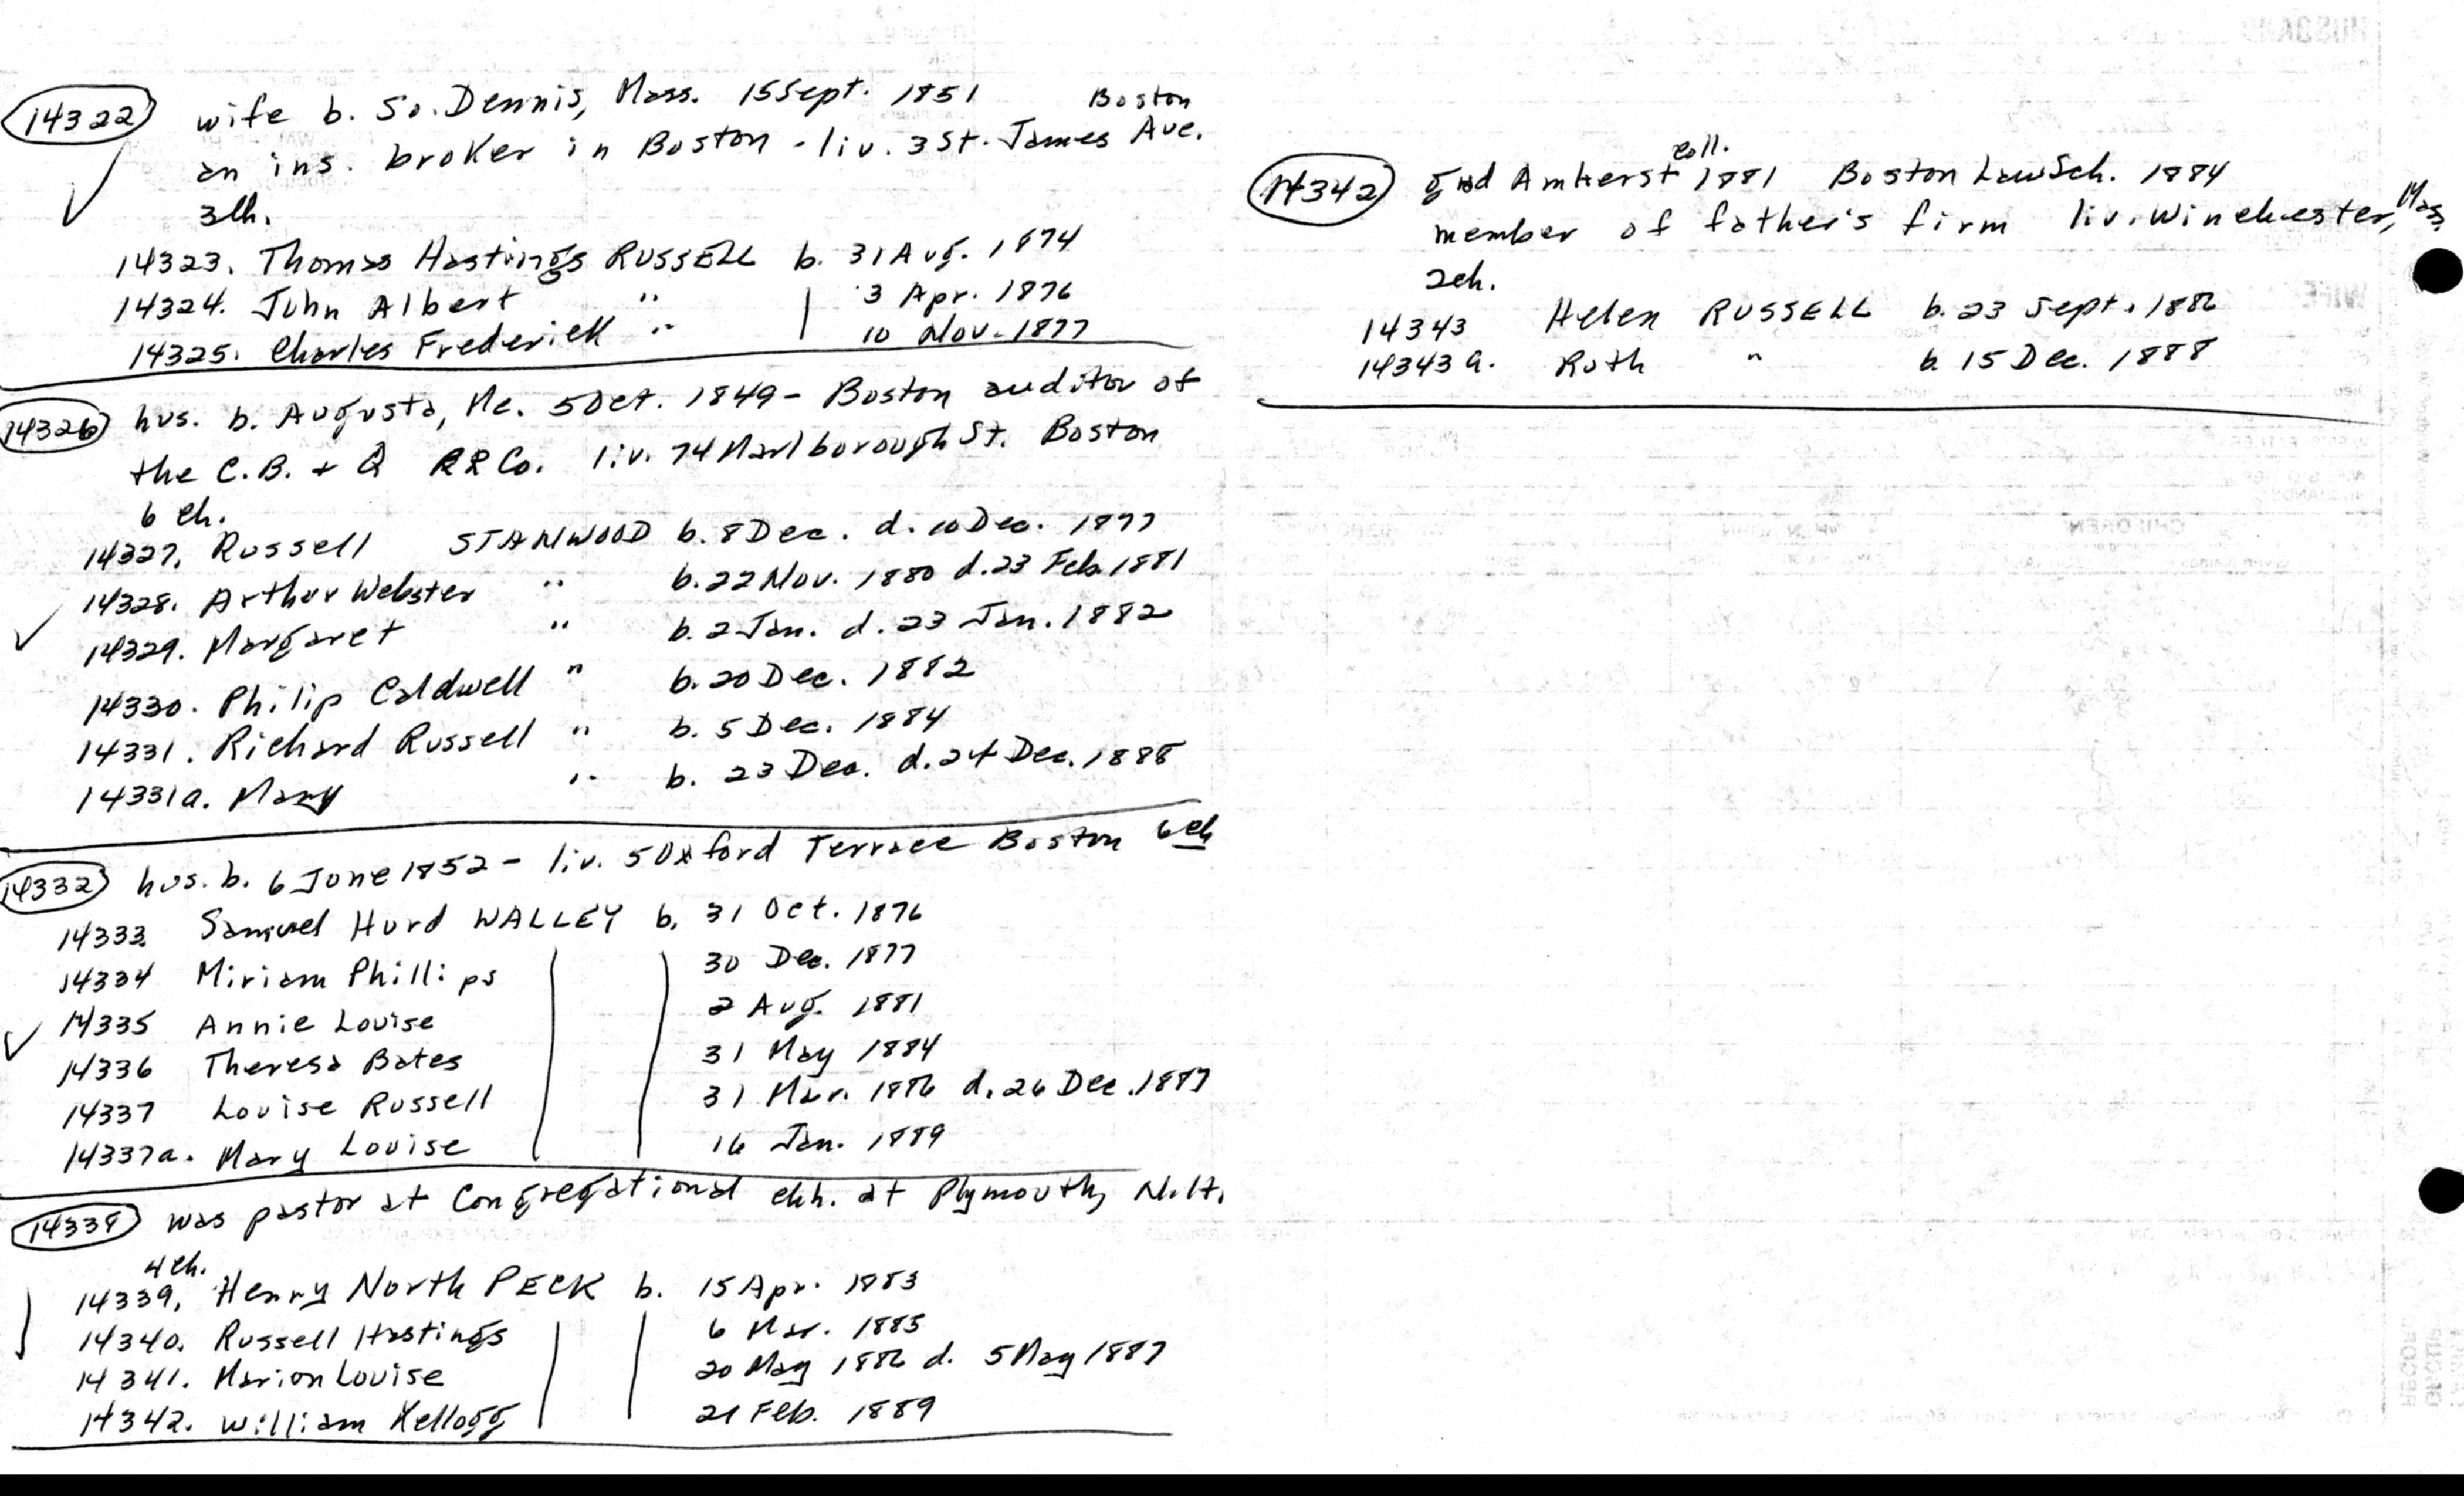 14322 wife b. So. Dennis, Mass. 15 Sept. 1851
an ins. broker in Boston - liv. 3 St. James Ave. Boston
3 ch.
14323. Thomas Hastings RUSSELL b. 31 Aug. 1874
14324. John Albert " 3 Apr. 1876
14325. Charles Frederick " 10 Nov. 1877
14326 hus. b. Augusta, Me. 5 Oct. 1849 - Boston auditor of
the C.B. + Q RR Co. liv. 74 Marlborough St. Boston
6 ch.
14327. Russell STANWOOD b. 8 Dec. d. 10 Dec. 1877
14328. Arthur Webster " b. 22 Nov. 1880 d. 23 Feb. 1881
14329. Margaret " b. 2 Jan. d. 23 Jan. 1882
14330. Philip Caldwell " b. 20 Dec. 1882
14331. Richard Russell " b. 5 Dec. 1884
14331a. Mary " b. 23 Dec. d. 24 Dec. 1888
14332 hus. b. 6 June 1852 - liv. 5 Oxford Terrace Boston 6 ch
14333. Samuel Hurd WALLEY b. 31 Oct. 1876
14334 Miriam Phillips 30 Dec. 1877
14335 Annie Louise 2 Aug. 1881
14336 Theresa Bates 31 May 1884
14337 Louise Russell 31 Mar. 1886 d. 26 Dec. 1887
14337a. Mary Louise 16 Jan. 1889
14338 was pastor at Congregational chh. at Plymouth, N.H.
4 ch.
14339. Henry North PECK b. 15 Apr. 1883
14340. Russell Hastings 6 Mar. 1885
14341. Marion Louise 20 May 1886 d. 5 May 1887
14342. William Kellogg 21 Feb. 1889
14342 grad Amherst Coll. 1881 Boston Law Sch. 1884
member of father's firm liv. Winchester, Mass
2 ch.
14343 Helen RUSSELL b. 23 Sept. 1886
14343a. Ruth " b. 15 Dec. 1888
HUSBAND
WIFE
CHILDREN